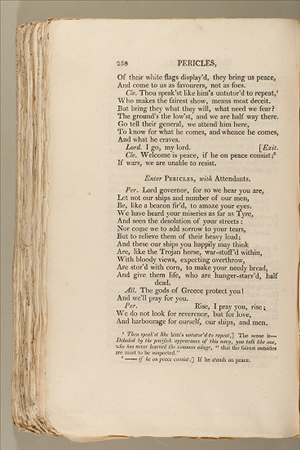 258 PERICLES,
Of their white flags display'd, they bring us peace,
And come to us as favourers, not as foes.
Cle. Thou speak'st like him's untutor'd to repeat,¹
Who makes the fairest show, means most deceit.
But bring they what they will, what need we fear?
The ground's the low'st, and we are half way there.
Go tell their general, we attend him here,
To know for what he comes, and whence he comes,
And what he craves.
Lord. I go, my lord. [Exit.
Cle. Welcome is peace, if he on peace consist;²
If wars, we are unable to resist.
Enter PERICLES, with Attendants.
Per. Lord governor, for so we hear you are,
Let not our ships and number of our men,
Be, like a beacon fir'd, to amaze your eyes.
We have heard your miseries as far as Tyre,
And seen the desolation of your streets:
Nor come we to add sorrow to your tears,
But to relieve them of their heavy load;
And these our ships you happily may think
Are, like the Trojan horse, war-stuff'd within,
With bloody views, expecting overthrow,
Are stor'd with corn, to make your needy bread,
And give them life, who are hunger-starv'd, half
dead.
All. The gods of Greece protect you!
And we'll pray for you.
Per. Rise, I pray you, rise;
We do not look for reverence, but for love,
And harbourage for ourself, our ships, and men.
¹ Thou speak'st like him's untutor'd to repeat,] The sense is—
Deluded by the pacifick appearance of this navy, you talk like one,
who has never learned the common adage, " that the fairest outsides
are most to be suspected."
² —— if he on peace consist;] If he stands on peace.